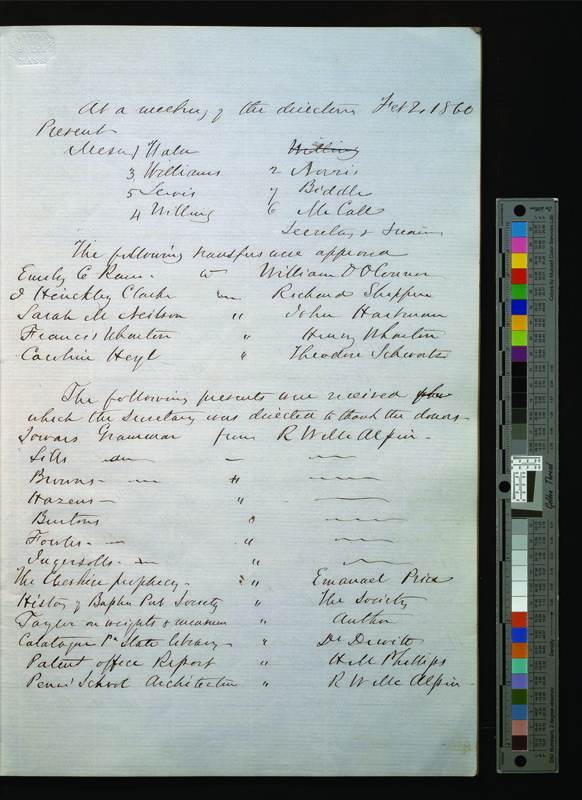 At a meeting of the directors Feb 2, 1860
Present
Messrs Waln Willing
3 Williams 2 Norris
5 Lewis 7 Biddle
4 Willing 6 McCall
Secretary &
The following transfers were approved
Emily C to William O'Connor
J Hinckley Clark Richard Shippen
Sarah M Neilson " John Hartman
Francis Wharton " Henry Wharton
Caroline Heyl " Theodore Schwartz
The following presents were received for
which the Secretary was directed to thank the donors
Towers Grammar from R W McAlpin
Sills
Browns "
Hazens "
Burtons "
Fowles "
Ingersolls "
The Cheshire prophecy " Emanuel Price
History of Baptis Pub Society " The Society
Taylor on weights & measures " Author
Catalogue Pa State library " Dr Dewitt
Patent office Report " H M Phillips
Penn School Architecture " R W McAlpin